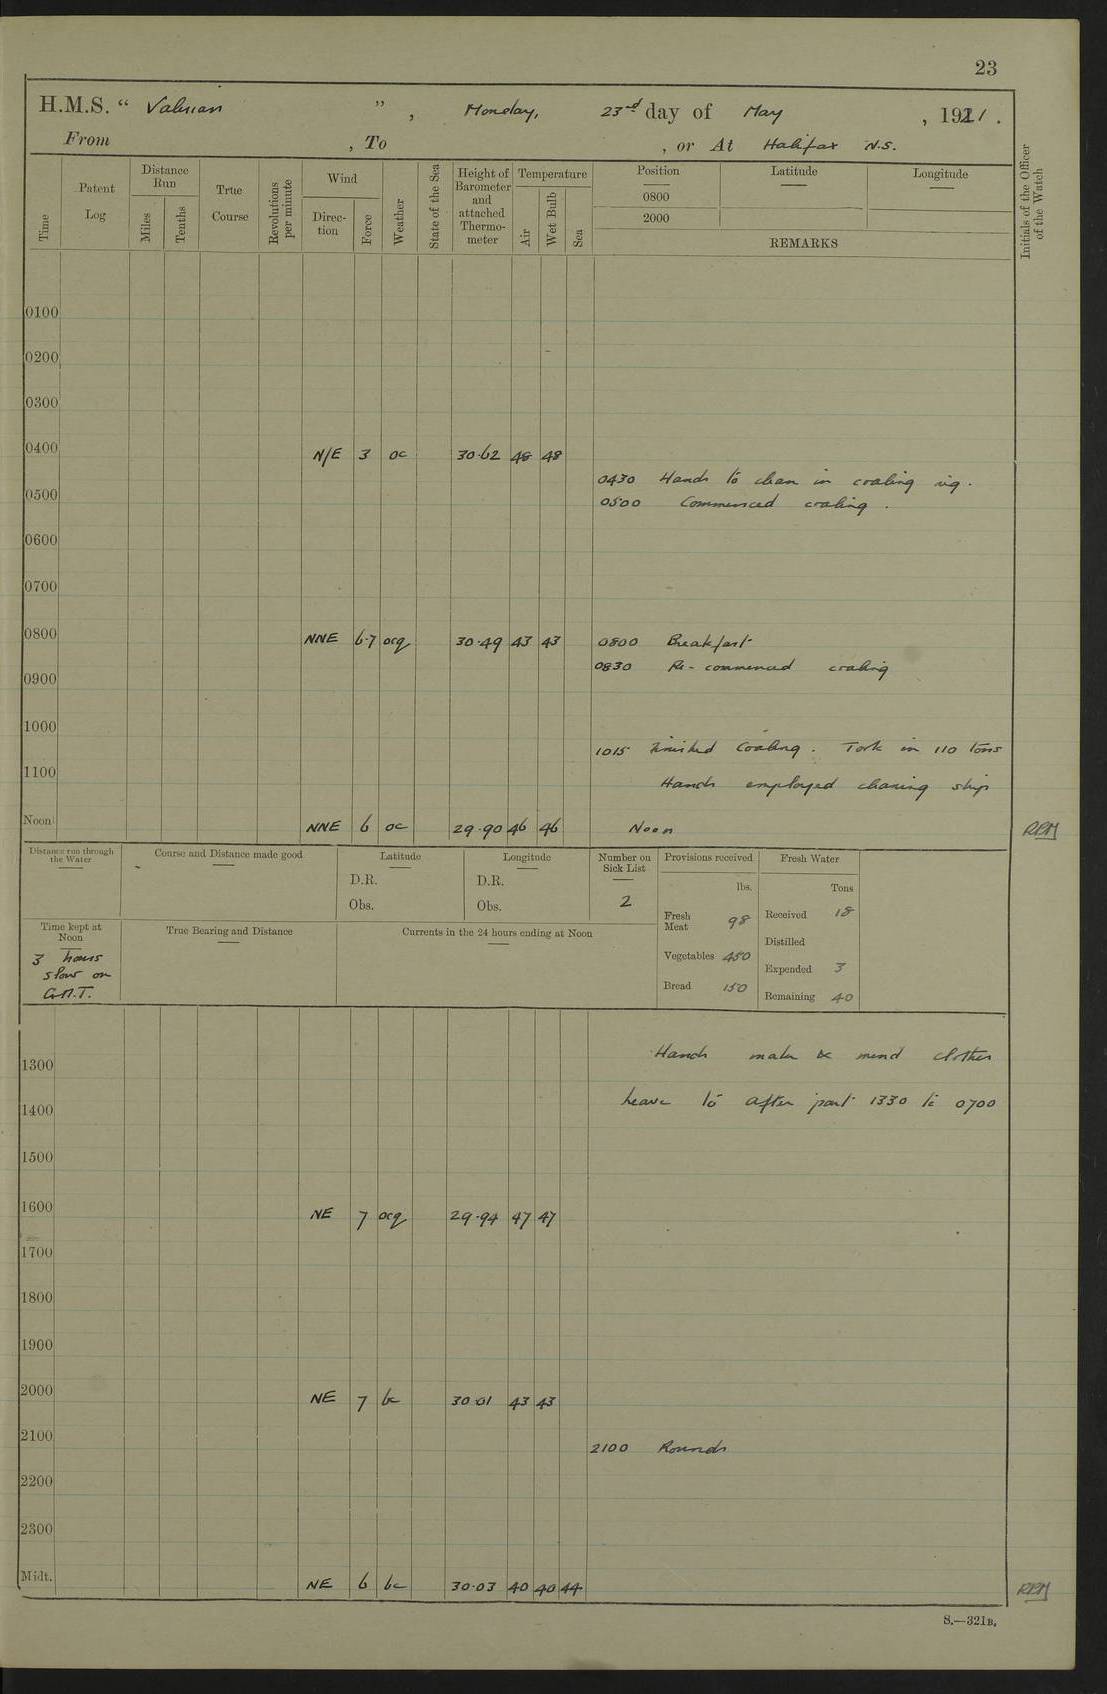 23
H.M.S. “ Valerian ” , Monday, 23rd day of May , 1921 .
From , To , or At Halifax N.S.
Time Patent Log Distance Run Miles Tenths True Course Revolutions per minute Wind Direction Force Weather State of the Sea Height of Barometer and attached Thermometer Temperature Air Wet Bulb Sea Position 0800 2000 Latitude Longitude
REMARKS
Initials of the Officer of the Watch
0100
0200
0300
0400 N/E 3 oc 30.62 48 48
0430 Hands to clean in coaling rig.
0500 0500 Commenced coaling.
0600
0700
0800 NNE 6-7 ocq 30.49 43 43 0800 Breakfast
0830 Re-commenced coaling
0900
1000
1015 Finished Coaling. Took in 110 tons
1100 Hands employed cleaning ship
Noon NNE 6 oc 29.90 46 46 Noon RRM
Distance run through the Water Course and Distance made good Latitude Longitude Number on Sick List Provisions received Fresh Water
D.R. D.R. lbs. Tons
Obs. Obs. 2
Fresh Meat 98 Received 18
Time kept at Noon True Bearing and Distance Currents in the 24 hours ending at Noon
Distilled
3 hours slow on G.M.T.
Vegetables 450 Expended 3
Bread 150 Remaining 40
1300 Hands make & mend clothes
1400 Leave to after part 1330 to 0700
1500
1600 NE 7 ocq 29.94 47 47
1700
1800
1900
2000 NE 7 bc 30.01 43 43
2100 2100 Rounds
2200
2300
Midt. NE 6 bc 30.03 40 40 44 RRM
S.—321B.